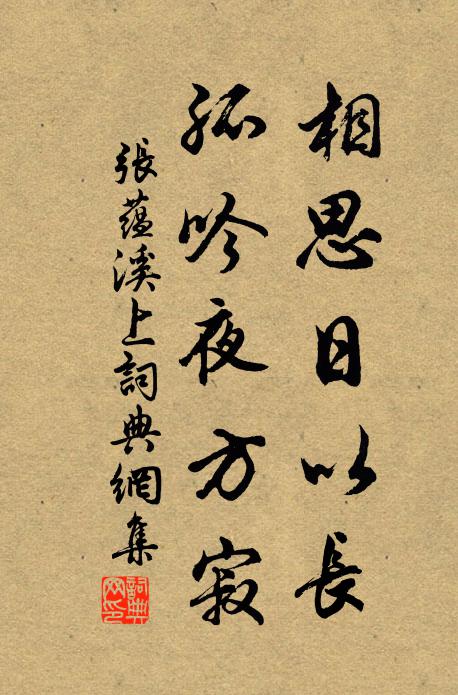 相思日以長
孤吟夜方寂
張蘊溪上詞典網集
詞典網印